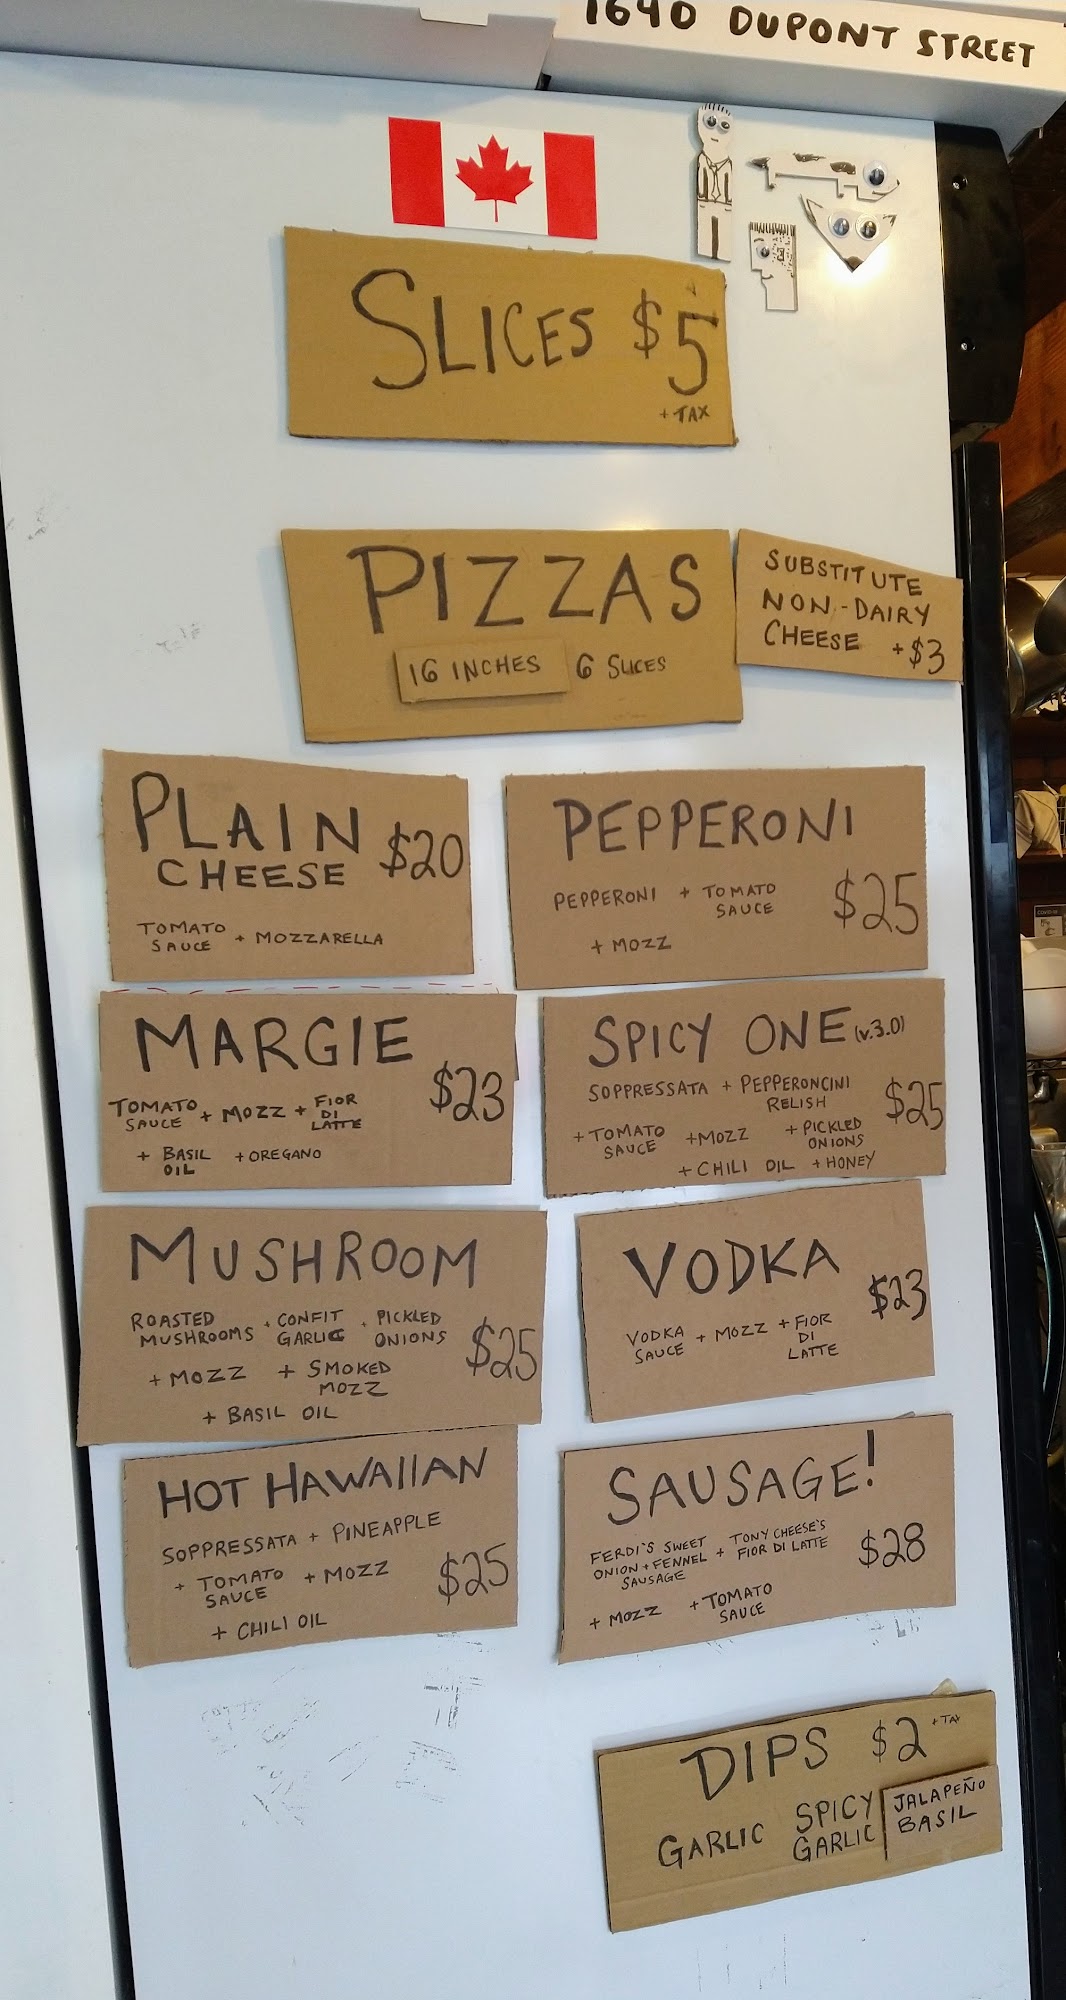 1640 DUPONT STREET
SLICES $5
+ TAX
PIZZAS
16 INCHES 6 SLICES
SUBSTITUTE
NON-DAIRY
CHEESE +$3
PLAIN
CHEESE $20
TOMATO
SAUCE + MOZZARELLA
PEPPERONI
PEPPERONI + TOMATO
SAUCE
+ MOZZ
$25
MARGIE
$23
TOMATO
SAUCE + MOZZ + FIOR
DI
LATTE
+ BASIL
OIL + OREGANO
SPICY ONE (v.3.0)
SOPPRESSATA + PEPPERONCINI
RELISH
$25
+ TOMATO
SAUCE + MOZZ + PICKLED
ONIONS
+ CHILI OIL + HONEY
MUSHROOM
ROASTED
MUSHROOMS + CONFIT
GARLIC + PICKLED
ONIONS
$25
+ MOZZ + SMOKED
MOZZ
+ BASIL OIL
VODKA
$23
VODKA
SAUCE + MOZZ + FIOR
DI
LATTE
HOT HAWAIIAN
SOPPRESSATA + PINEAPPLE
+ TOMATO
SAUCE + MOZZ
$25
+ CHILI OIL
SAUSAGE!
FERDI'S SWEET
ONION + FENNEL
SAUSAGE + TONY CHEESE'S
FIOR DI LATTE
$28
+ MOZZ + TOMATO
SAUCE
DIPS $2 + TAX
GARLIC SPICY
GARLIC
JALAPEÑO
BASIL